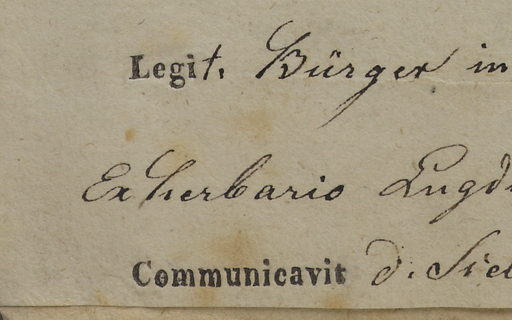 Legit. Bürger in
Ex herbario Lugd
Communicavit d. Sie